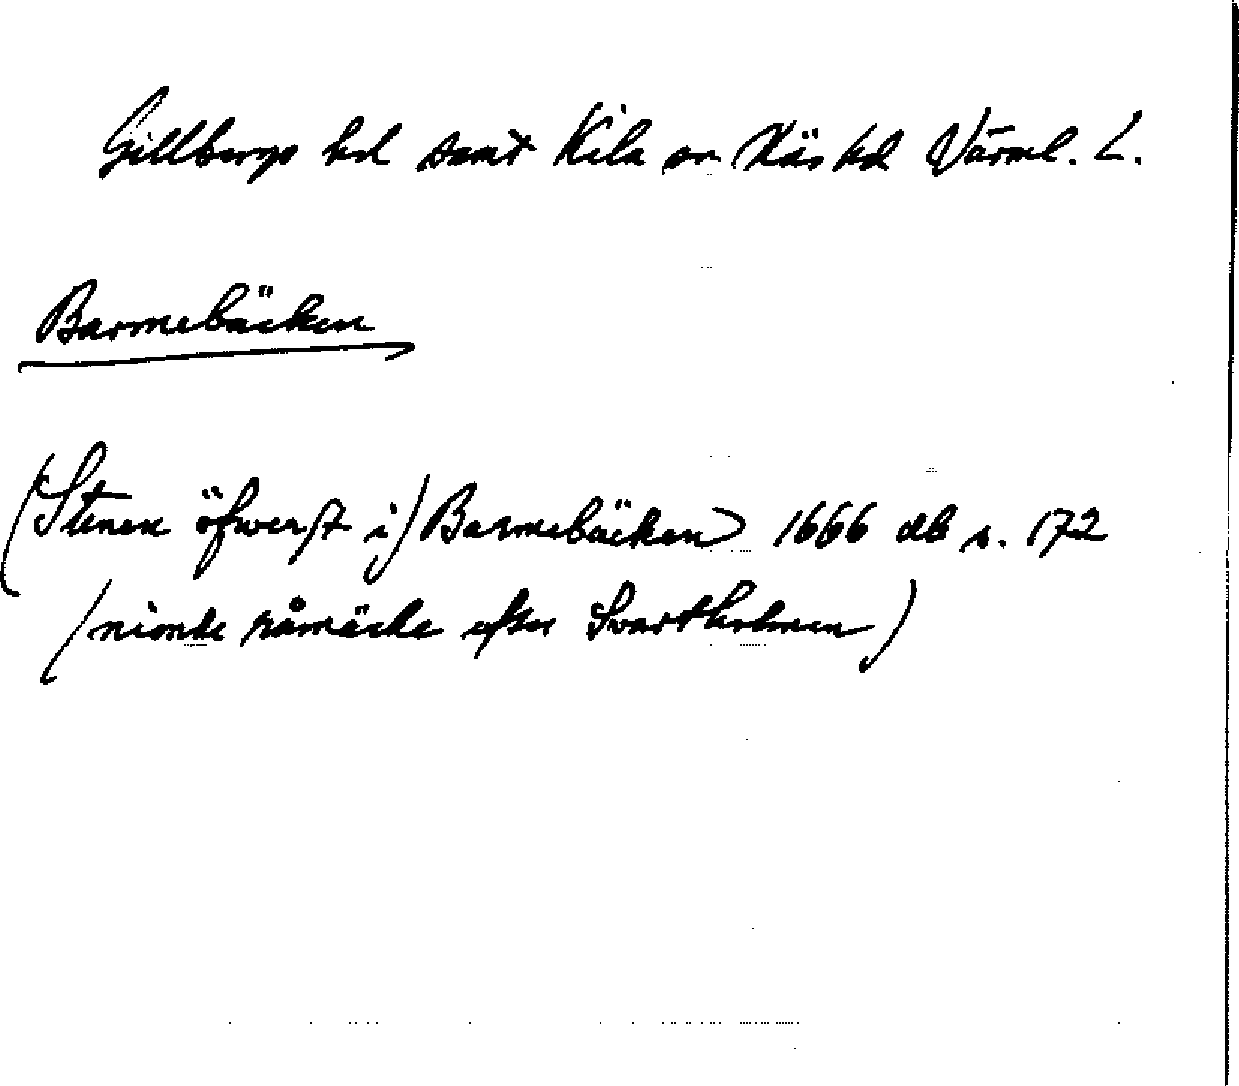 Gillbergs hd samt Kila sn Näs hd Värml. L.
Barmebäcken
(Stenen öfwerst i) Barmebäcken 1666 db s. 172
(nionde råmärke efter Svartholmen)